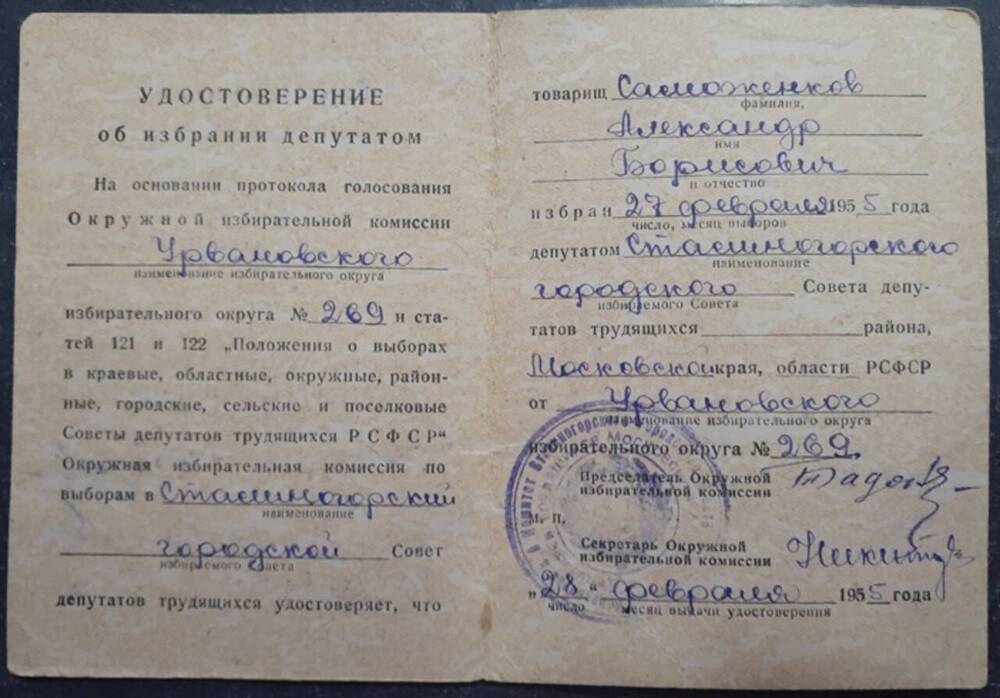 УДОСТОВЕРЕНИЕ
об избрании депутатом
На основании протокола голосования
Окружной избирательной комиссии
Урвановского
наименование избирательного округа
избирательного округа № 269 и ста-
тей 121 и 122 „Положения о выборах
в краевые, областные, окружные, район-
ные, городские, сельские и поселковые
Советы депутатов трудящихся РСФСР“
Окружная избирательная комиссия по
выборам в Сталиногорский
наименование
городской Совет
избираемого Совета
депутатов трудящихся удостоверяет, что
товарищ Саможенков
фамилия,
Александр
имя
Борисович
и отчество
избран 27 февраля 1955 года
число, месяц выборов
депутатом Сталиногорского
наименование
городского Совета депу-
избираемого Совета
татов трудящихся района,
Московской края, области РСФСР
от Урвановского
наименование избирательного округа
избирательного округа № 269
Председатель Окружной
избирательной комиссии
М. П.
Секретарь Окружной
избирательной комиссии
„28“ февраля 1955 года
число месяц выдачи удостоверения